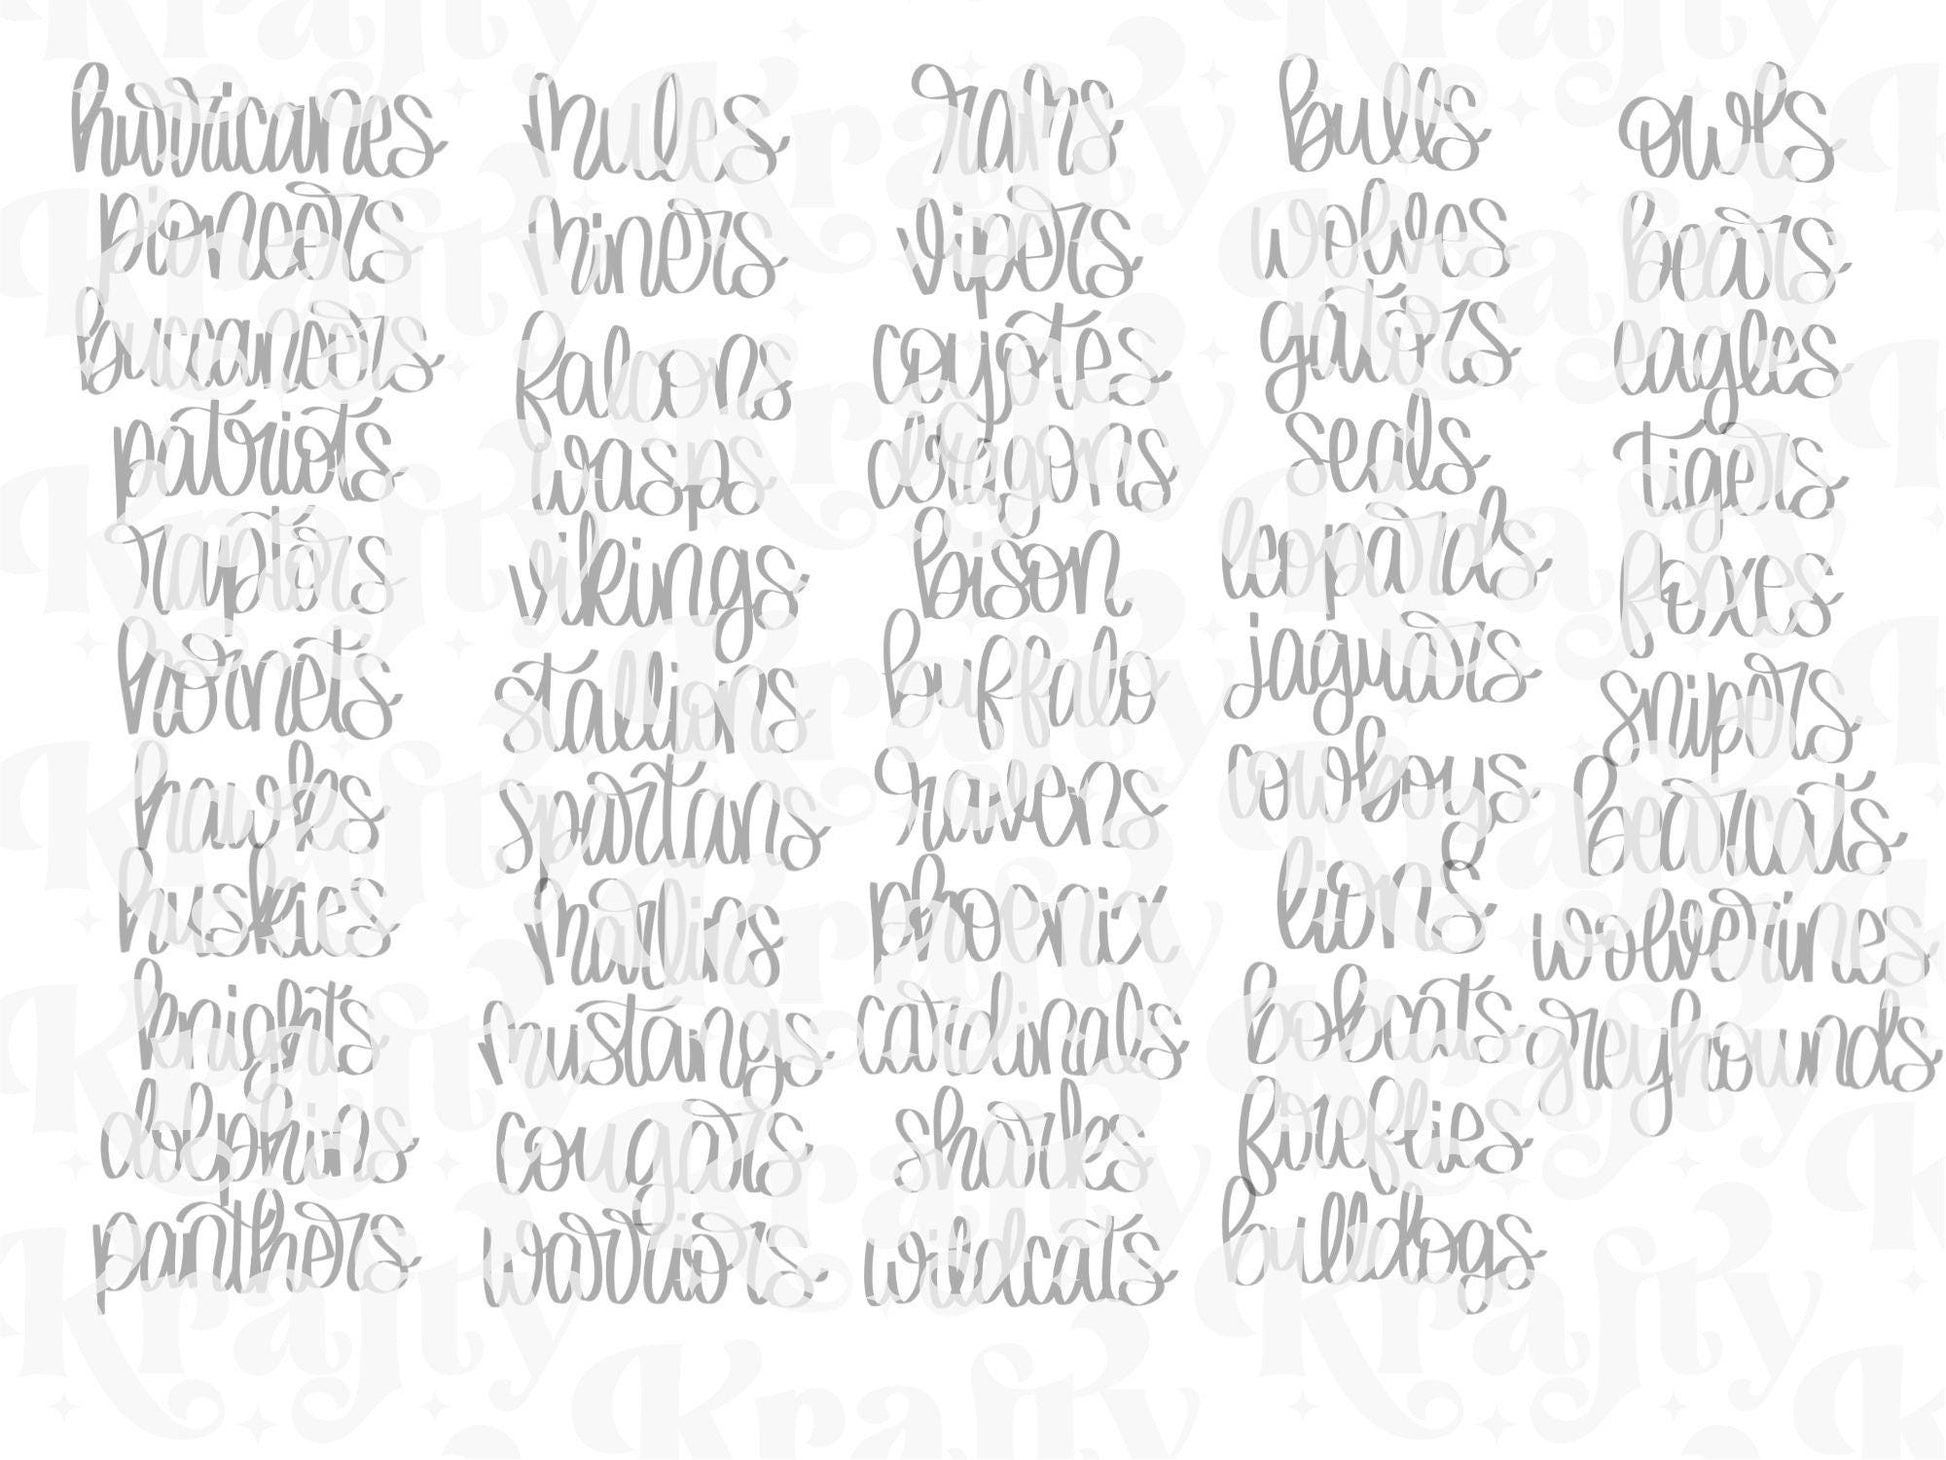 hurricanes
pioneers
buccaneers
patriots
raptors
hornets
hawks
huskies
knights
dolphins
panthers
mules
miners
falcons
wasps
vikings
stallions
spartans
marlins
mustangs
cougars
warriors
rams
vipers
coyotes
dragons
bison
buffalo
ravens
phoenix
cardinals
sharks
wildcats
bulls
wolves
gators
seals
leopards
jaguars
cowboys
lions
bobcats
fireflies
bulldogs
owls
bears
eagles
tigers
foxes
snipers
bearcats
wolverines
greyhounds
Krafty